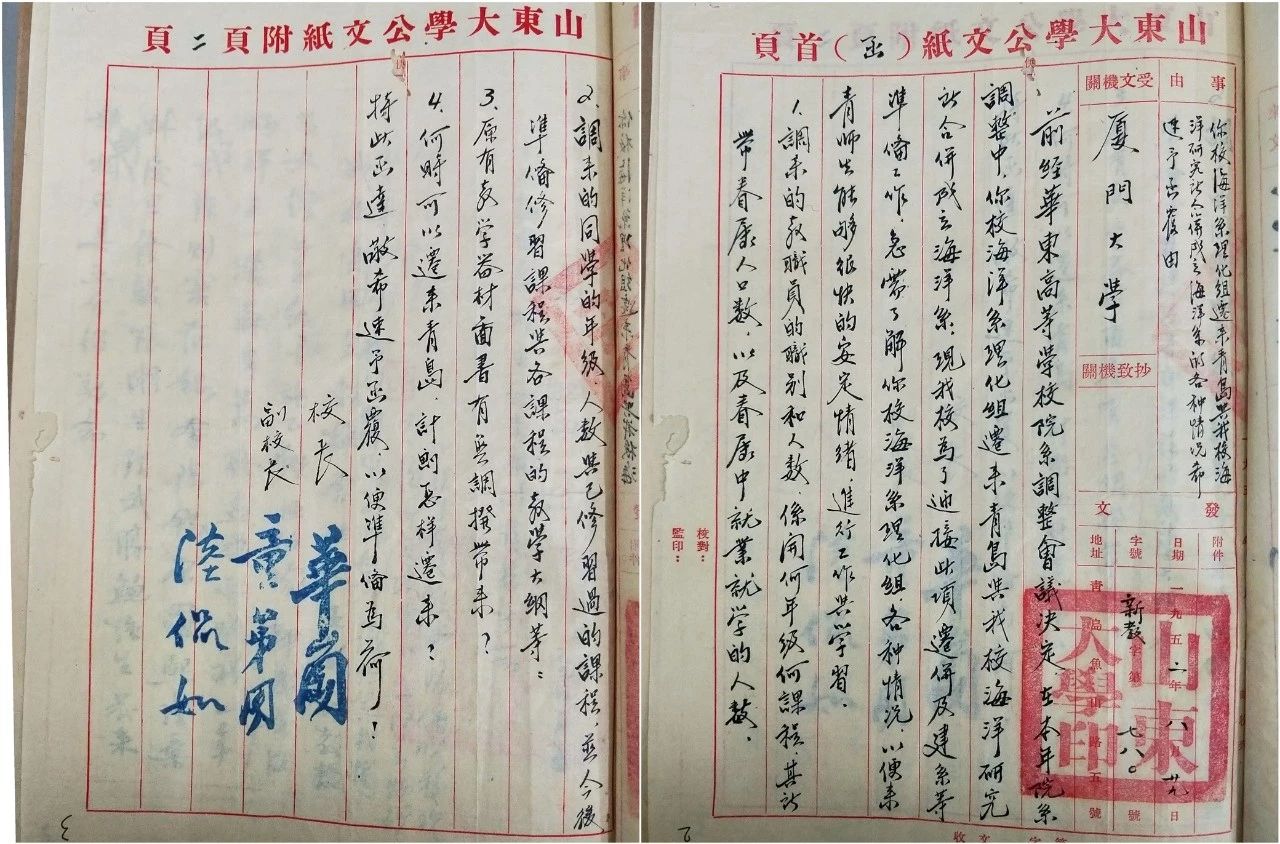 山東大學公文紙(函)首頁
事由
你校海洋系理化組遷來青島與我校海
洋研究所合併成立海洋系的各种情况希
速予函覆由
受文機關
厦門大學
抄致機關
發文
附件
日期 一九五二年八月廿九日
字號 新教字第七八〇號
地址 青島魚山路五號
山東大學印
前經華東高等学校院系調整會議决定，在本年院系
調整中，你校海洋系理化組遷来青島與我校海洋研究
所合併成立海洋系，現我校為了迎接此項遷併及建系等
準備工作，急需了解你校海洋系理化組各种情况，以便来
青師生能够很快的安定情緒，進行工作與学習。
1、調来的教職員的職别和人数，係開何年級何課程，其所
帶眷屬人口数，以及眷屬中就業就学的人数。
校對：
監印：
2
山東大學公文紙附頁二頁
2、調来的同學的年級，人数與已修習過的課程，並今後
準備修習課程與各課程的教學大綱等：
3、原有教学器材圖書有無調撥帶来？
4、何時可以遷来青島，計劃怎样遷来？
特此函達，敬希速予函覆，以便準備為荷！
校長
副校長
華崗
童第周
陸侃如
3